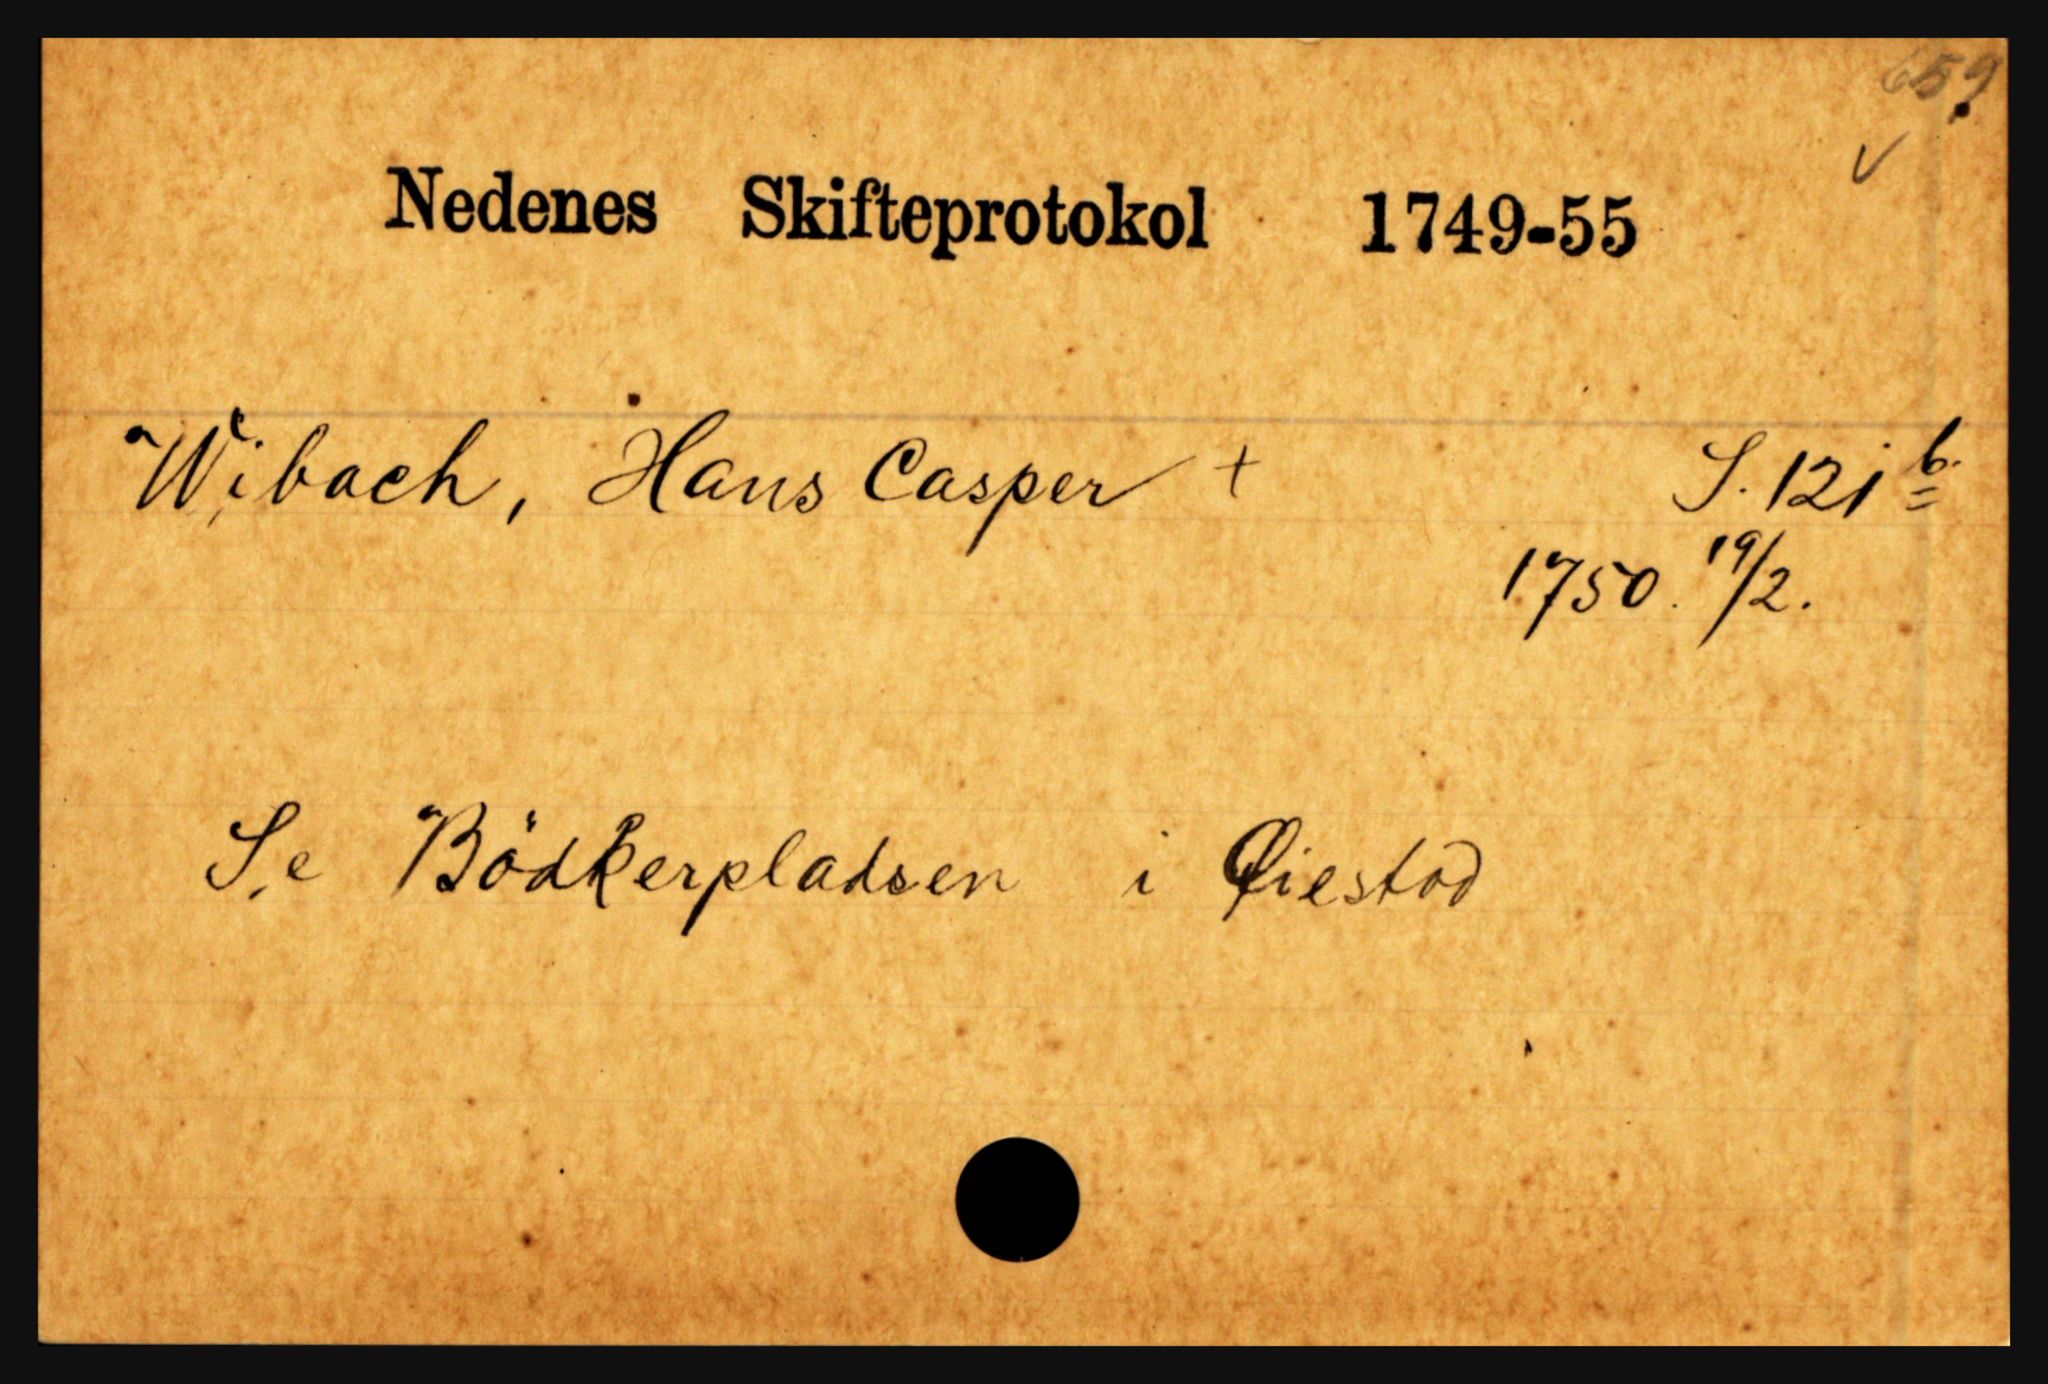 659
v
Nedenes Skifteprotokol 1749-55
Wibach, Hans Casper + S. 121 b.
1750. 19/2.
Se Bödkerpladsen i Øiestad